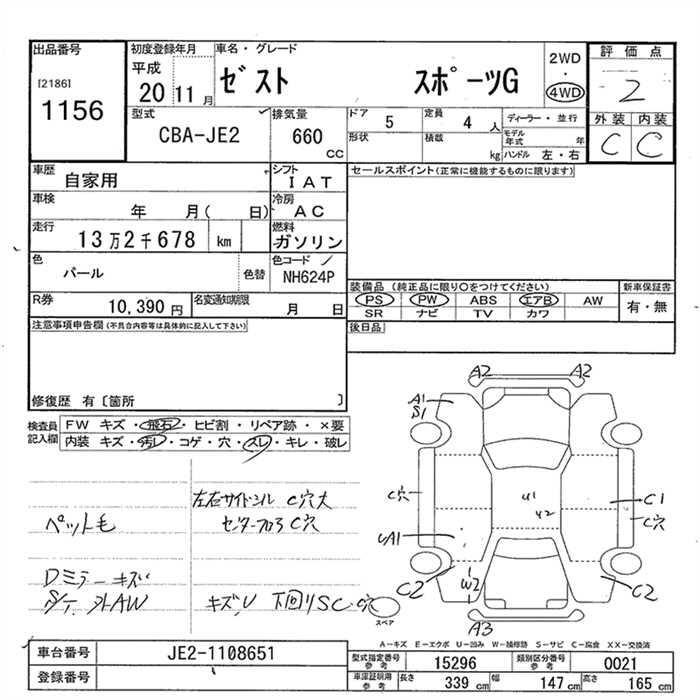 出品番号
[2186]
1156
初度登録年月
平成
20 11月
車名・グレード
ゼスト スポーツG
2WD
・
4WD
評価点
2
外装 内装
C C
型式
CBA-JE2
排気量
660
CC
ドア 5
定員 4 人
形状
積載 kg
ディーラー・並行
モデル年式 年
ハンドル 左・右
車歴
自家用
シフト
IAT
車検
年 月( 日)
冷房
AC
走行
13万2千678 km
燃料
ガソリン
色
パール
色替
色コード
NH624P
R券
10,390 円
名変通知期限
月 日
セールスポイント(正常に機能するものに限ります)
装備品 (純正品に限り○をつけてください)
PS PW ABS エアB AW
SR ナビ TV カワ
新車保証書
有・無
後日品
注意事項申告欄(不具合内容等は具体的に記入して下さい)
修復歴 有〔箇所 〕
検査員記入欄
FW キズ・飛石・ヒビ割・リペア跡・×要
内装 キズ・汚レ・コゲ・穴・スレ・キレ・破レ
左右サイドシル C穴大
ペット毛
センターフロア C穴
Dミラーキズ
社外AW
キズU 下回りSC穴
A2 A2
A1
S1
C穴
U1
U2
C1
C穴
UA1
C2
W2
C2
A3
スペア
A-キズ E-エクボ U-凹み W-補修跡 S-サビ C-腐食 XX-交換済
車台番号
JE2-1108651
登録番号
型式指定番号
参考
15296
類別区分番号
参考
0021
車庫証明用
参考
長さ 339 cm
幅 147 cm
高さ 165 cm